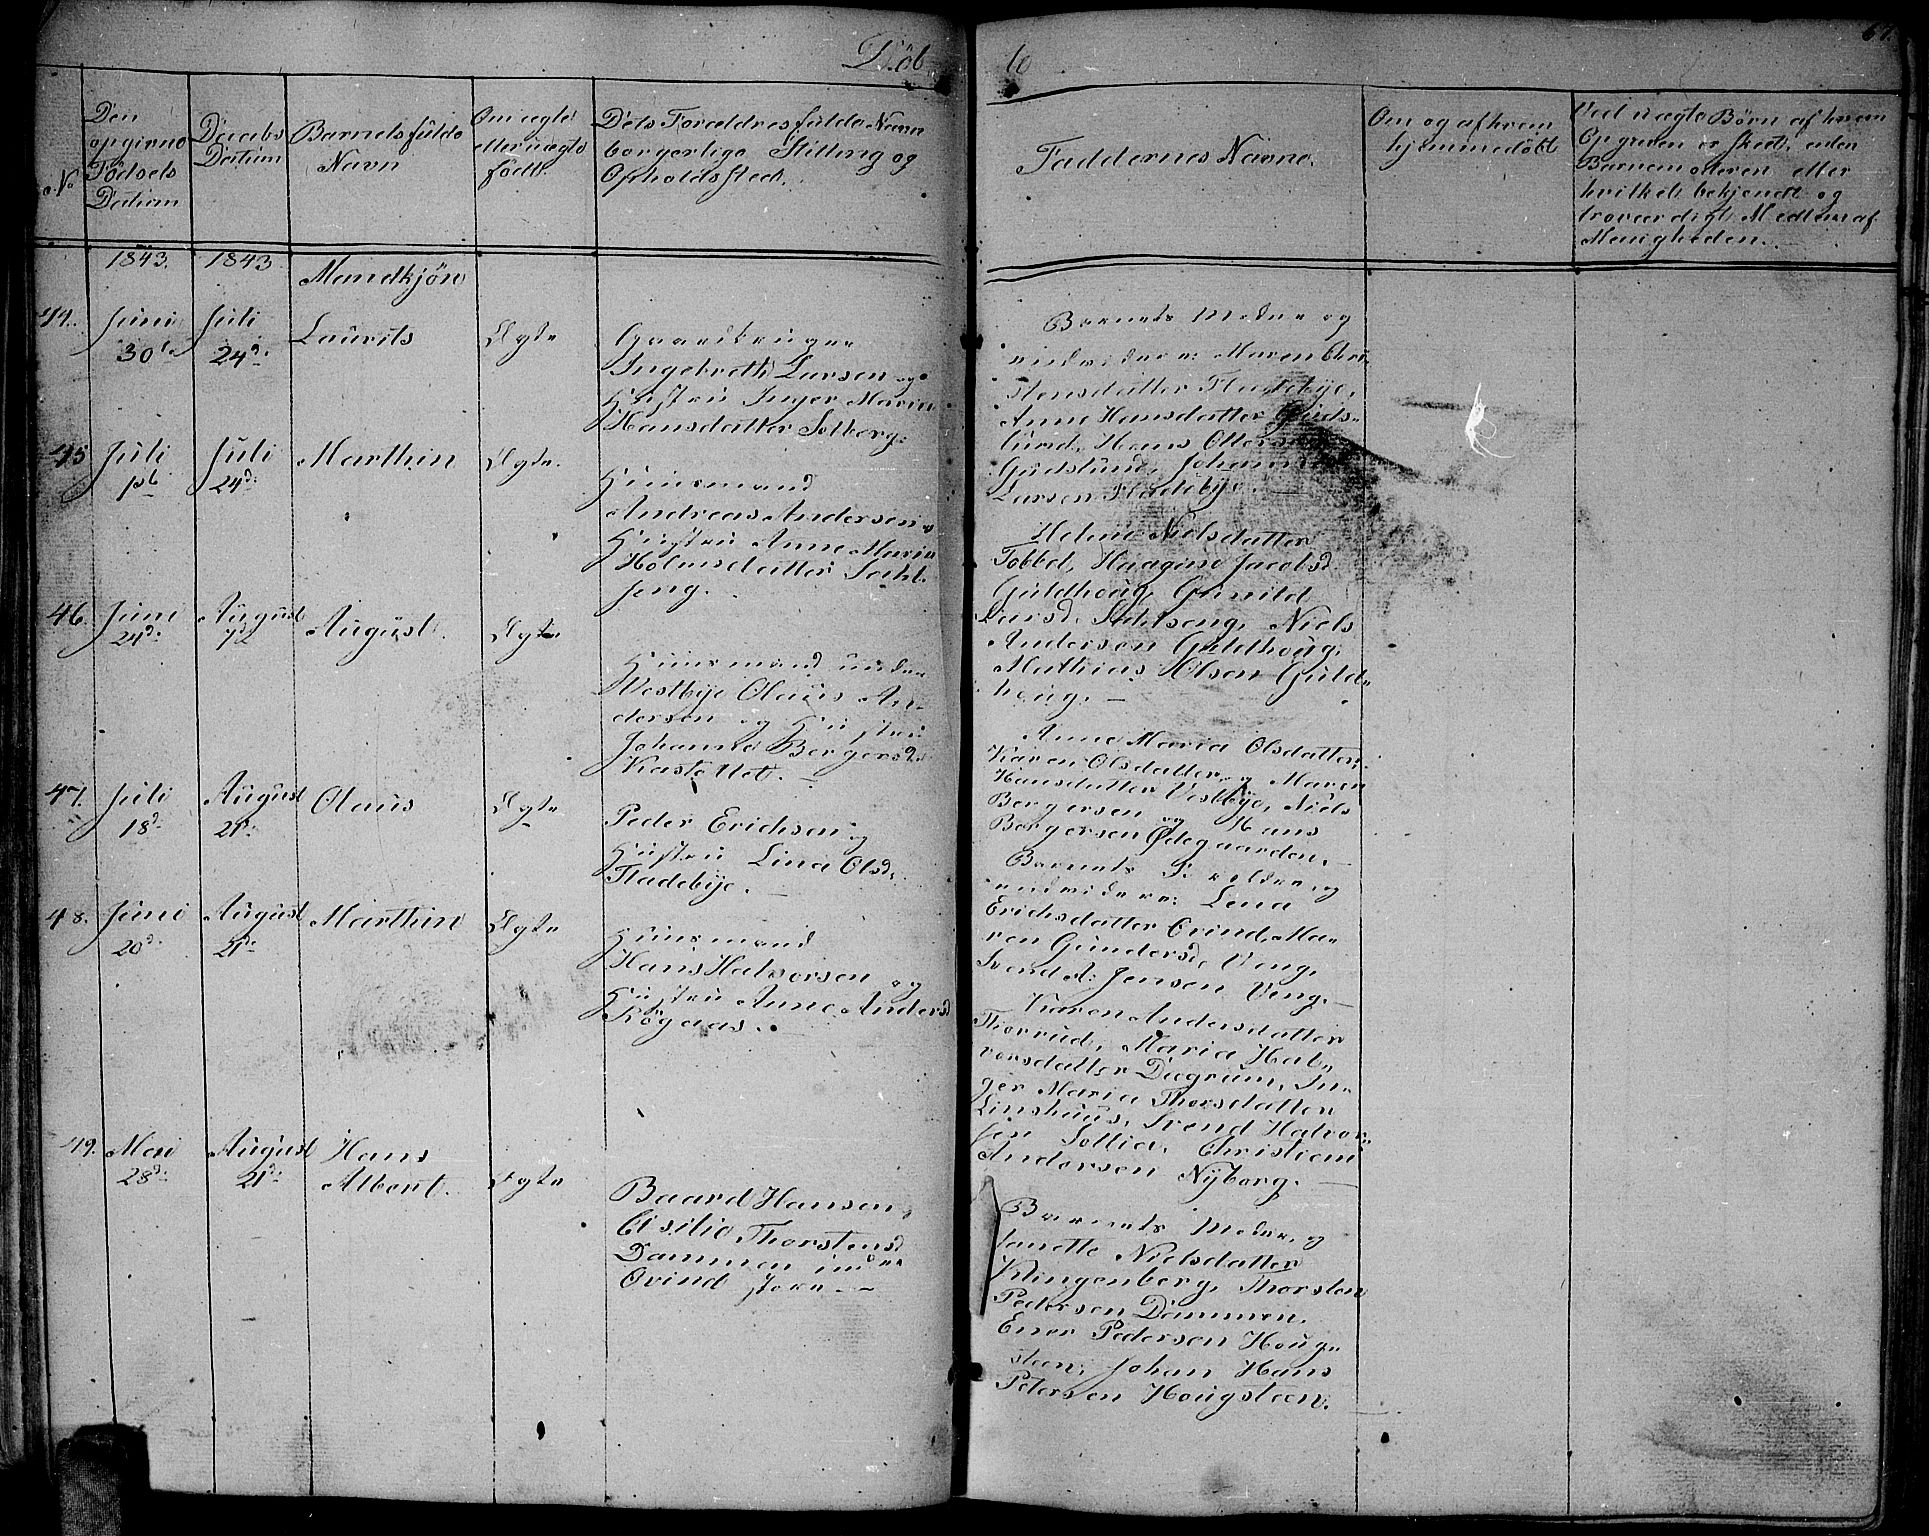 Døb
te
67.
No
Den
opgivne
Fødsels
Datum
Daabs
Datum
Barnets fulde
Navn
Om ægte
eller uægte
født.
Dets Forældres fulde Navn
borgerlige Stilling og
Opholdssted.
Faddernes Navne.
Om og af hvem
hjemmedøbt
Ved uægte Børn af hvem
Opgiven er skeet, enten
Barnemoderen eller
hvilket bekjendt og
troværdigt Medlem af
Menigheden.
1843. 1843
Mandkjön
44.
Juni
30te
Juli
24d.
Laurits
Ægte
Gaardbruger
Ingebreth Larsen og
Hustru Inger Maria
Hansdatter Solberg.
Barnets Moder og
endvidere: Maren Chri-
stensdatter Fladebye,
Anne Hansdatter Guds-
lund, Hans Ottersen
Gudslund, Johannes
Larsen Fladebye.
45
Juli
1ste
Juli
24d.
Marthin
Ægte.
Huusmand
Andreas Andersen og
Hustru Anne Maria
Holmsdatter Sæhl-
seng.
Helene Nielsdatter
Tobbel, Haagine Jacobsd
Guldhoug, Gunild
Larsd. Sæhlseng, Niels
Andersen Guldhoug,
Mathias Olsen Guld-
houg.
46.
Juni
24d.
August
7d
August.
Ægte
Huusmand under
Westbye Olaus An-
dersen og Hustru
Johanne Bergersd.
Kastellet.
Anne Maria Olsdatter,
Karen Olsdatter og Maren
Hansdatter Vestbye, Niels
Bergersen og Hans
Bergersen Ødegaarden.
47.
Juli
18d.
August
21d.
Olaus
Ægte
Peder Erichsen og
Hustru Lina Olsd.
Fladebye.
Barnets Forældre og
endvidere: Lena
Erichsdatter Ovind, Ma-
ren Gundersd. Veng,
Svend A. Jensen Veng.
48.
Juni
20d.
August
21d.
Marthin
Ægte
Huusmand
Hans Halvorsen og
Hustru Anne Andersd
Røgaas.
Karen Andersdatter
Thorrud, Maria Hal-
vorsdatter Dægrum, In-
ger Maria Thorsdatter
Linshuus, Svend Halvor-
sen Sollia, Christian
Andersen Nyborg.
49.
Mai
28d.
August
21d.
Hans
Albert.
Ægte
Baard Hansen,
Cisilie Thorstensd
Dammen under
Ovind store
Barnets Moder og
Janette Nielsdatter
Klingenberg, Thorsten
Pedersen Dammen,
Ener Pedersen Houg-
steen, Johan Hans
Petersen Hougsteen.